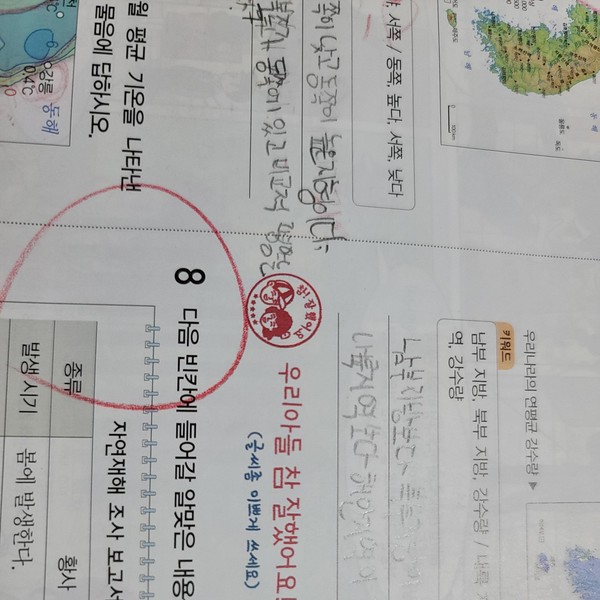 울릉도
독도
서쪽 / 동쪽, 높다, 서쪽, 낮다
쪽이 낮고 동쪽이 높은 지형이다.
동쪽에 있고 비교적 평평한
월 평균 기온을 나타낸
물음에 답하시오.
동해
0.4℃
우리나라의 연평균 강수량 ▶
키워드
남부 지방, 북부 지방, 강수량 / 내륙
역, 강수량
남부지방보다
내륙지역보다 해안지역이
우리아들 참 잘했어요!
(글씨좀 이쁘게 쓰세요)
8 다음 빈칸에 들어갈 알맞은 내용
자연재해 조사 보고서
종류 황사
발생 시기 봄에 발생한다.